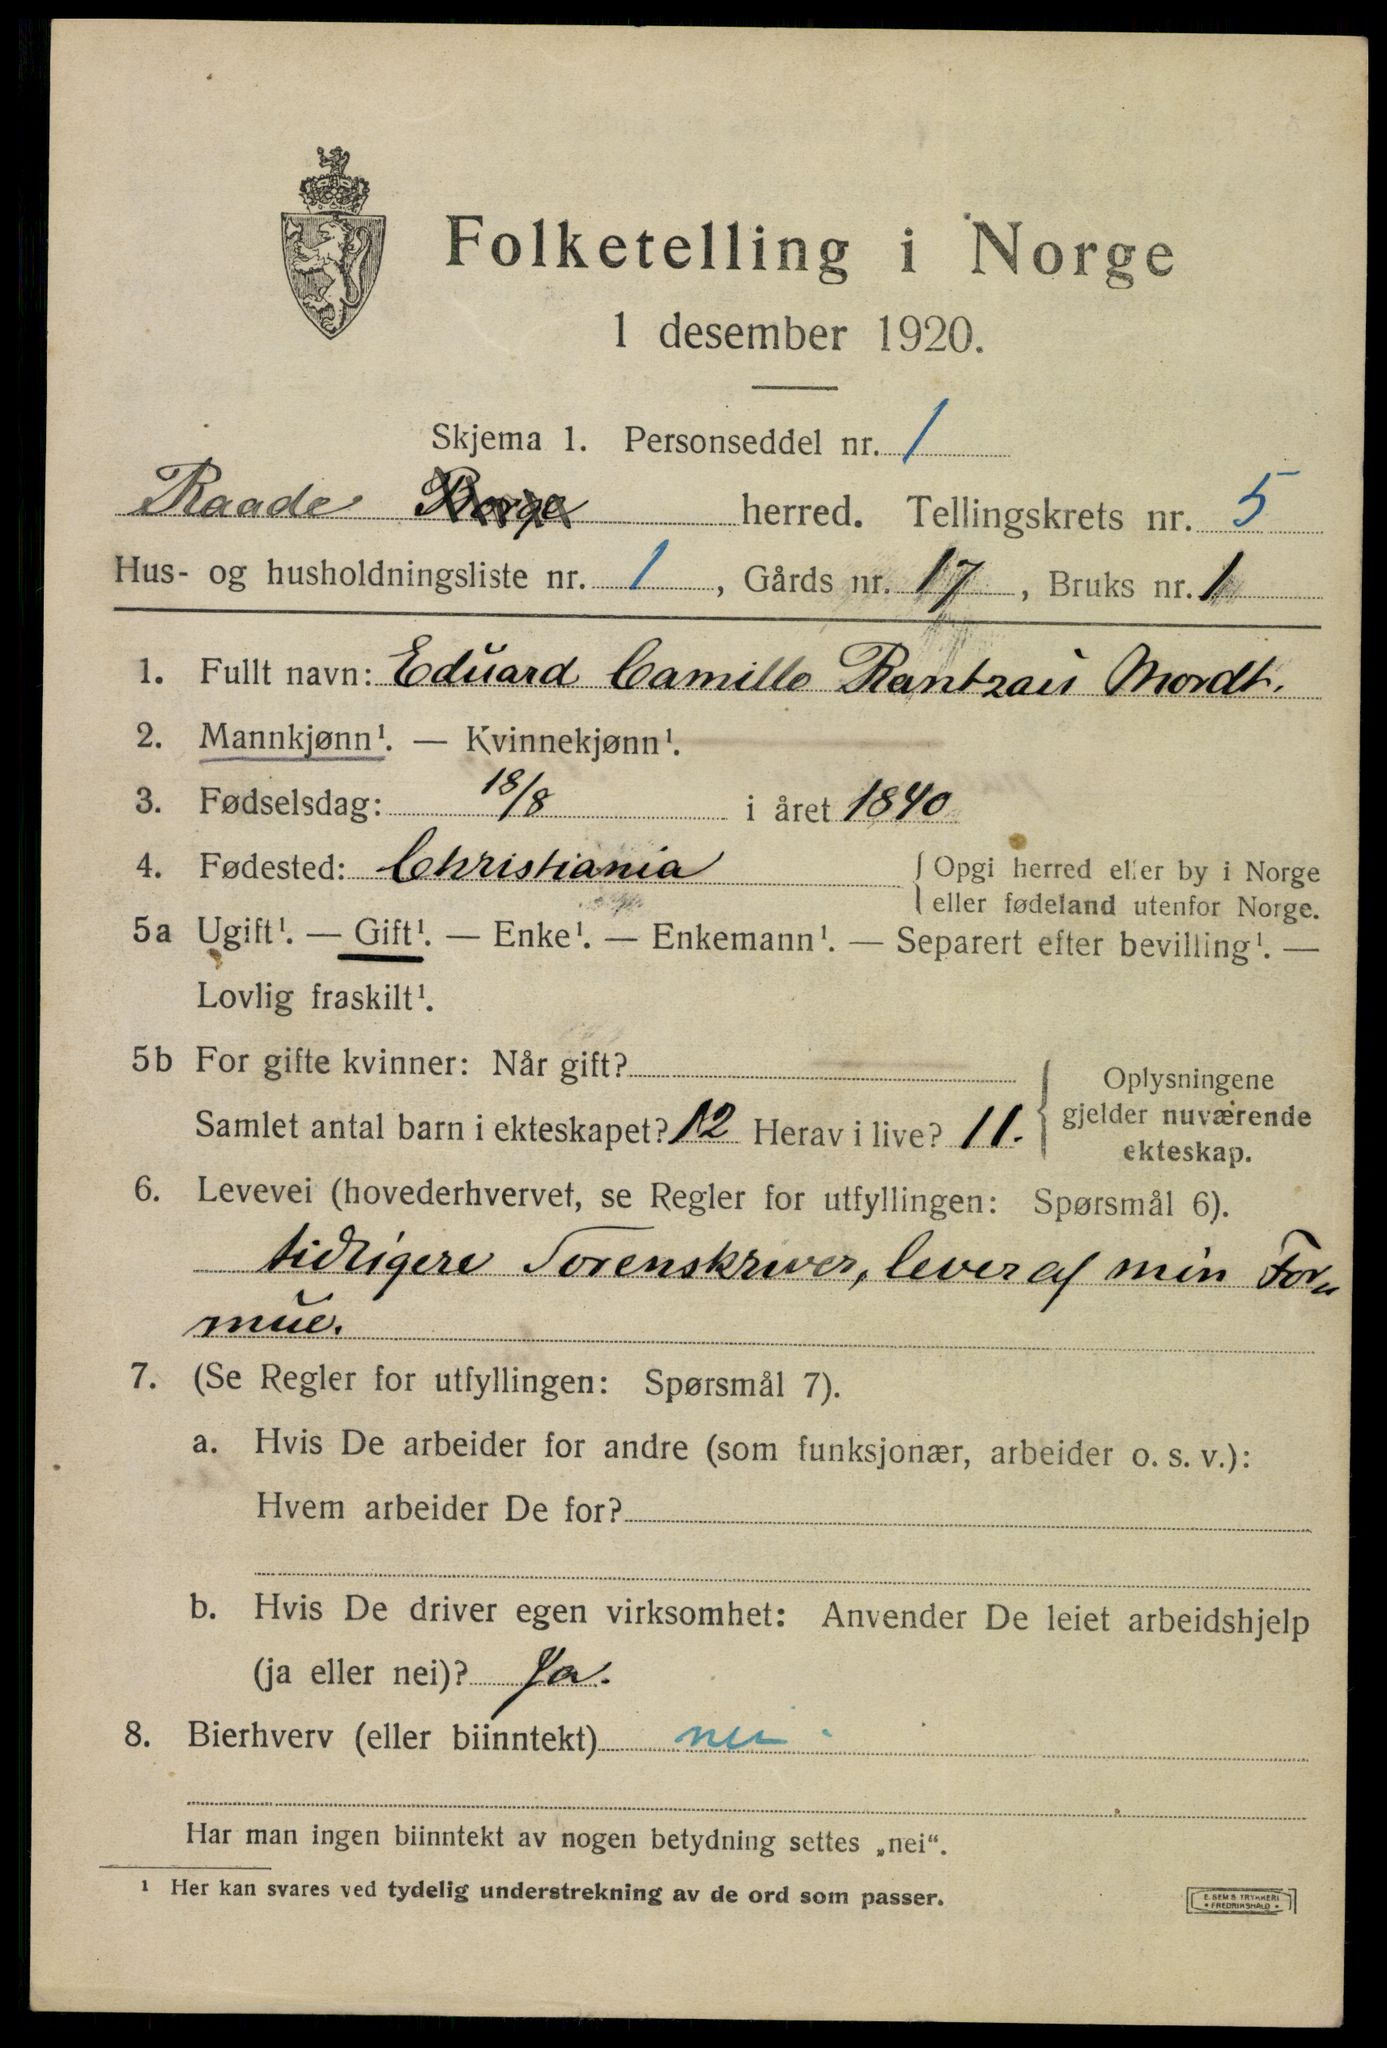 Folketelling i Norge
1 desember 1920.
Skjema 1. Personseddel nr. 1
Raade Borge herred. Tellingskrets nr. 5
Hus- og husholdningsliste nr. 1, Gårds nr. 17, Bruks nr. 1
1. Fullt navn: Eduard Camillo Rantzau Mordt.
2. Mannkjønn¹. — Kvinnekjønn¹.
3. Fødselsdag: 18/8 i året 1840
4. Fødested: Christiania { Opgi herred eller by i Norge
eller fødeland utenfor Norge.
5a Ugift¹. — Gift¹. — Enke¹. — Enkemann¹. — Separert efter bevilling¹. —
Lovlig fraskilt¹.
5b For gifte kvinner: Når gift?
Samlet antal barn i ekteskapet? 12 Herav i live? 11.
{ Oplysningene
gjelder nuværende
ekteskap.
6. Levevei (hovederhvervet, se Regler for utfyllingen: Spørsmål 6).
tidligere Sorenskriver, lever af min For„
mue.
7. (Se Regler for utfyllingen: Spørsmål 7).
a. Hvis De arbeider for andre (som funksjonær, arbeider o. s. v.):
Hvem arbeider De for?
b. Hvis De driver egen virksomhet: Anvender De leiet arbeidshjelp
(ja eller nei)? Ja.
8. Bierhverv (eller biinntekt) nei
Har man ingen biinntekt av nogen betydning settes „nei“.
¹ Her kan svares ved tydelig understrekning av de ord som passer.
E. SEMS TRYKKERI
* FREDRIKSHALD *